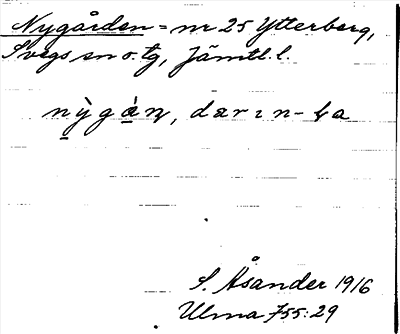 Nygården = nr 25 Ytterberg,
Svegs sn o. tg, Jämtl. l.
nỳgàṇ, darın-
S. Åsander 1916
Ulma 755:29